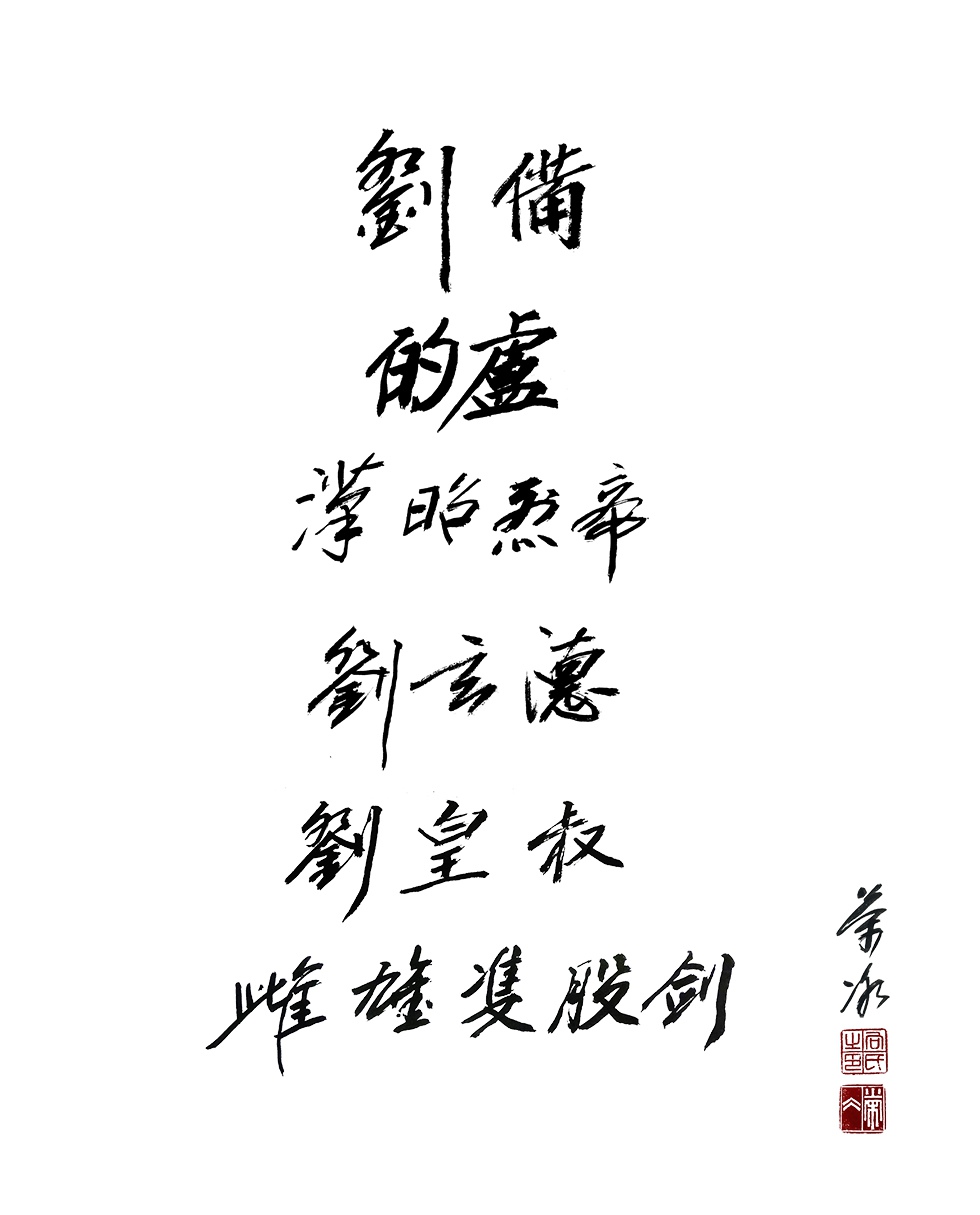 劉備
的盧
漢昭烈帝
劉玄德
劉皇叔
雌雄雙股劍
荣冰